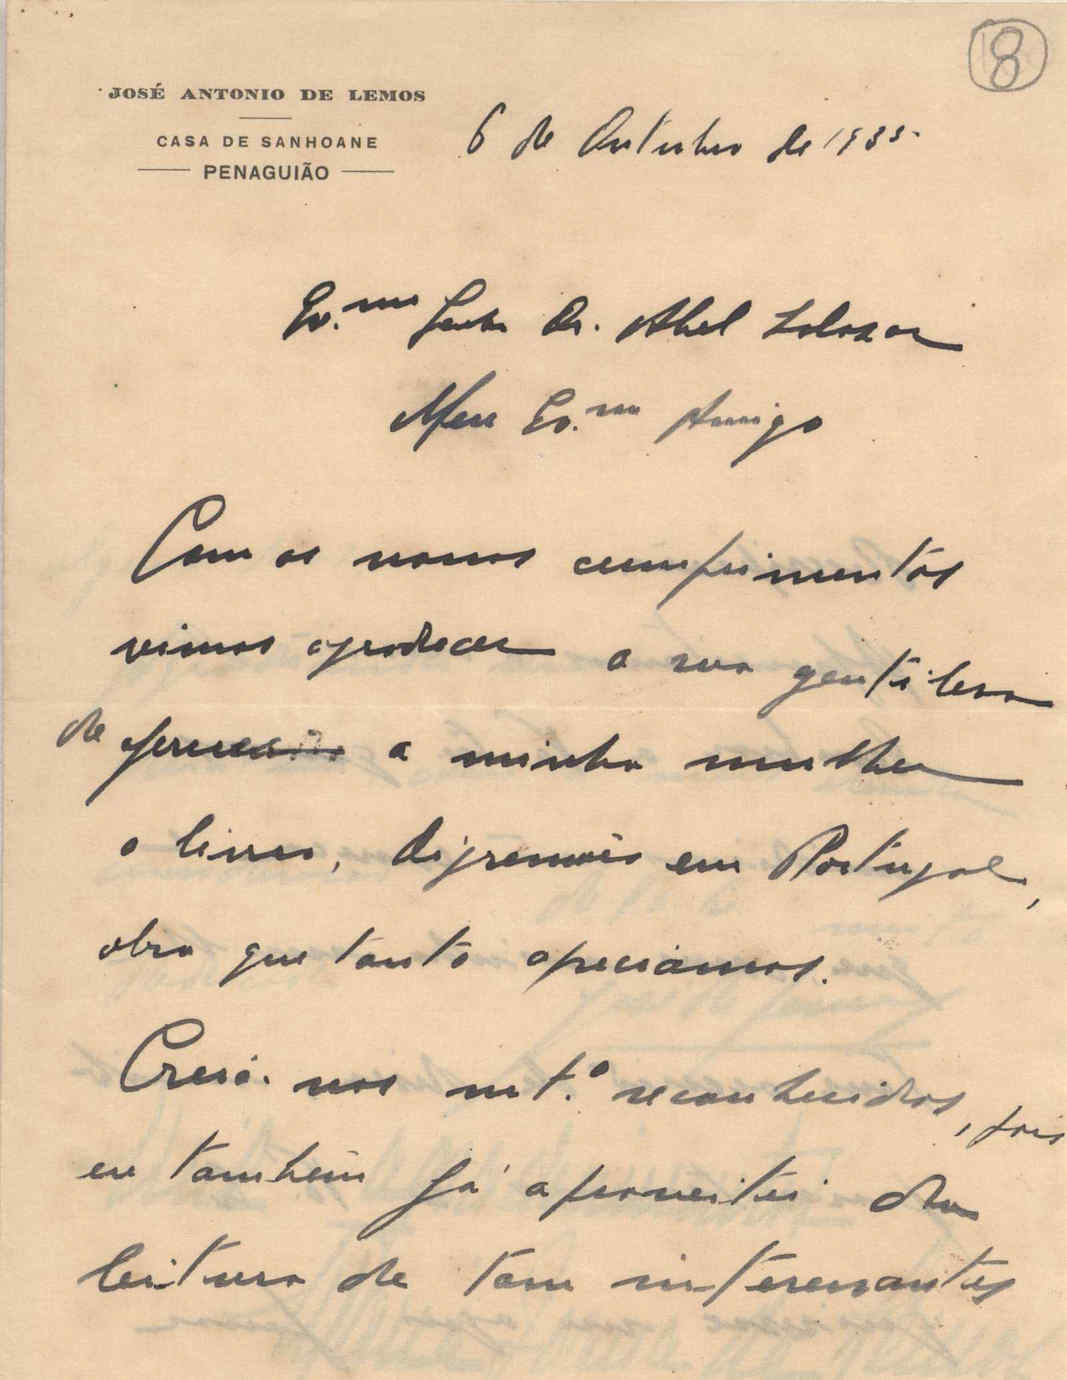 8
JOSÉ ANTONIO DE LEMOS
CASA DE SANHOANE
PENAGUIÃO
6 de Outubro de 1935.
Ex.mo Senhor Dr. Abel Salazar
Meu Ex.mo Amigo
Com os nossos cumprimentos
vimos agradecer a sua gentileza
de a minha mulher
o livro, Digressões em Portugal,
obra que tanto apreciamos.
Creia-nos mt.º reconhecidos, pois
eu também já aproveitei da
leitura de tam interessantes